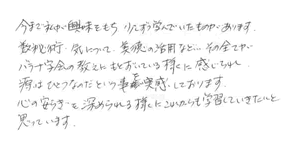 今まで私が興味をもち少しずつ学んでいたものがあります。
数秘術・気について、葉酸の活用など…その全てが
バラナ学会の教えにもとづいている様に感じられ
源はひとつなのだという事を実感しております。
心の安らぎを深められる様にこれからも学習していきたいと
思っています。